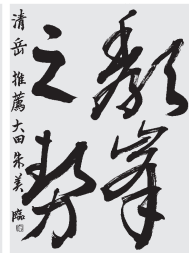 頽峯
之勢
清岳 推薦 大田朱美 臨